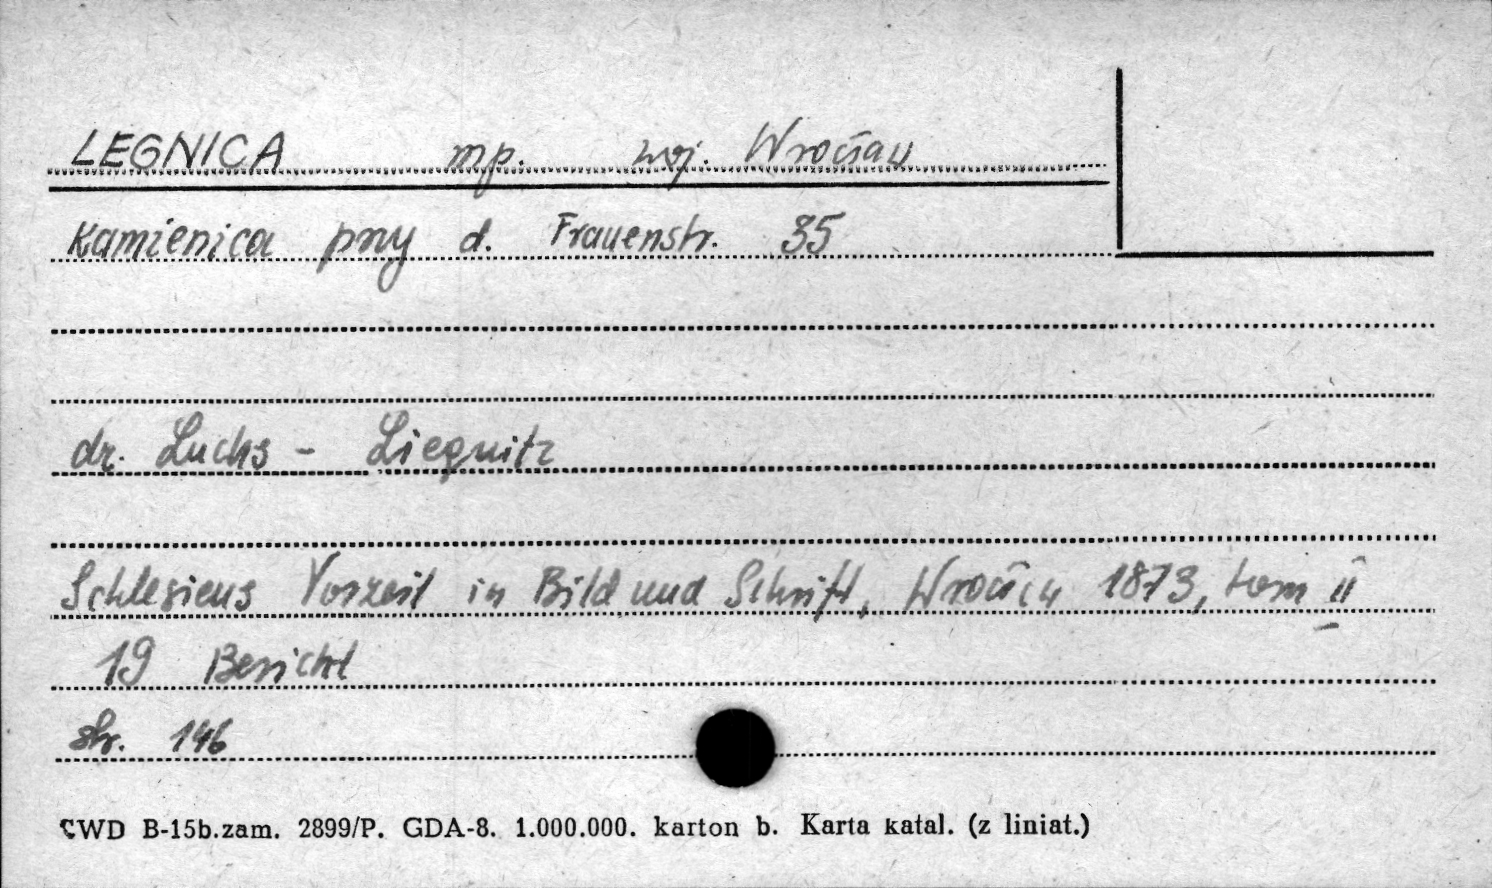 LEGNICA mp. woj. Wrocław
Kamienica przy d. Frauenstr. 35
dr. Luchs - Liegnitz
Schlesiens Vorzeit in Bild und Schrift, Wrocław 1873, tom II
19 Bericht
str. 146
CWD B-15b.zam. 2899/P. GDA-8. 1.000.000. karton b. Karta katal. (z liniat.)